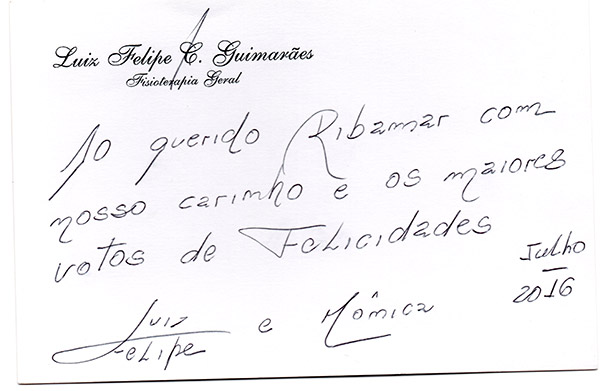 Luiz Felipe C. Guimarães
Fisioterapia Geral
Ao querido Ribamar com
nosso carinho e os maiores
votos de Felicidades
Julho
2016
Luiz Felipe e Mônica